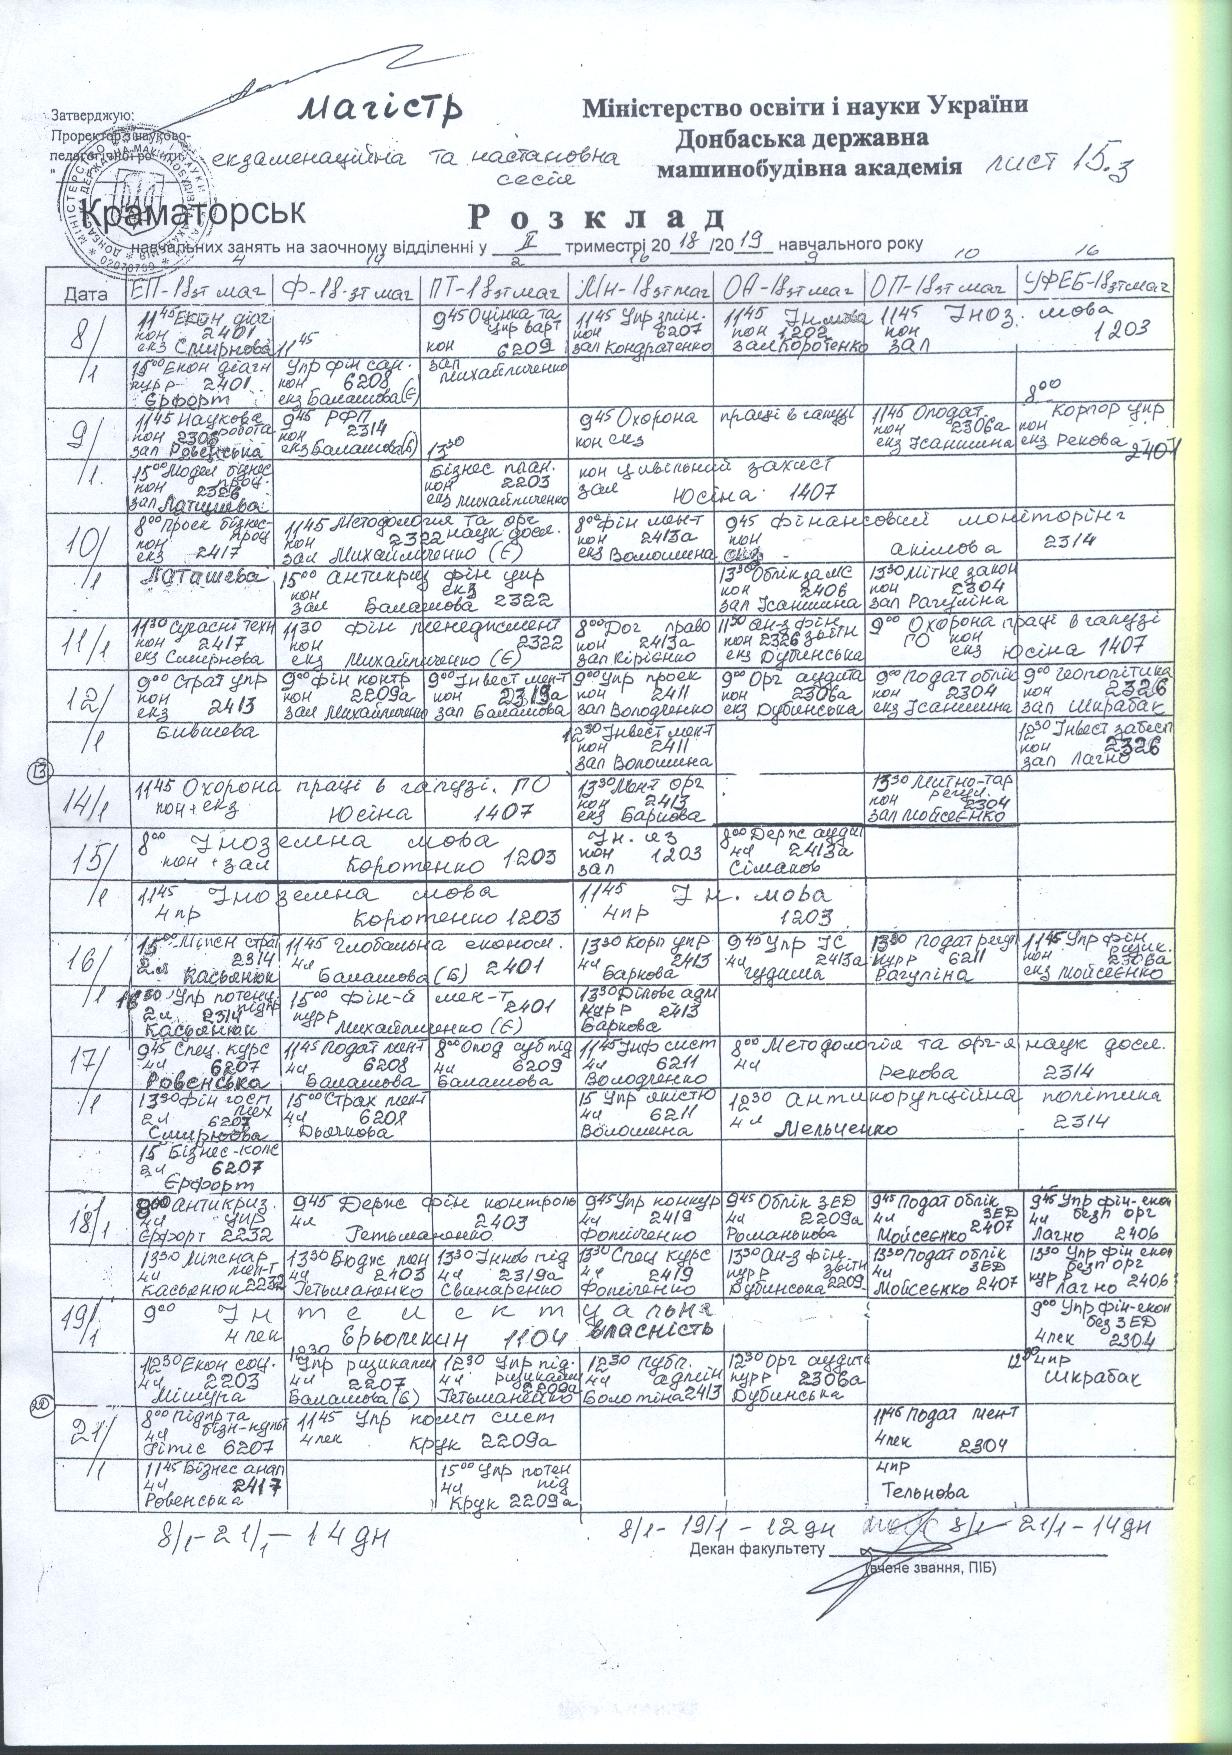 Затверджую:
Проректор з науково-
педагогічної роботи
магістр
екзаменаційна та настановна
сесія
Міністерство освіти і науки України
Донбаська державна
машинобудівна академія
лист 15.з
Краматорськ
Розклад
навчальних занять на заочному відділенні у II триместрі 2018/2019 навчального року
4 14 2 16 9 10 16
Дата ЕП-18зт маг Ф-18-зт маг ПТ-18зт маг Мн-18зт маг ОА-18зт маг ОП-18зт маг УФЕБ-18зт маг
8/1
11⁴⁵ Екон діаг
кон 2401
екз Смирнова
15⁰⁰ Екон діагн
курр 2401
Єрфорт
11⁴⁵
Упр фін сан.
кон 6208
екз Балашова(Є)
9⁴⁵ Оцінка та
упр варт
кон 6209
зал
Михайличенко
11⁴⁵ Упр змін.
кон 6207
зал Кондратенко
11⁴⁵ Ін.мова
кон 1202
зал Коротенко
11⁴⁵ Іноз. мова
кон 1203
зал
9/1.
11⁴⁵ Наукова
робота
кон 2305
зал Ровенська
15⁰⁰ Модел бізнес
проц.
кон 2326
зал Латишева
9⁴⁵ РФП
кон 2314
екз Балашова(Б)
13³⁰
Бізнес план.
кон 2203
екз Михайличенко
9⁴⁵ Охорона праці в галузі
кон екз
кон цивільний захист
зал Юсіна 1407
11⁴⁵ Оподат.
кон 2306а
екз Ісаншина
8⁰⁰
Корпор упр
кон
екз Рекова 2401
10/1
8⁰⁰ Проек бізнес-
проц
кон
екз 2417
Латашева
11⁴⁵ Методология та орг
кон 2322 наук досл.
зал Михайличенко (Є)
15⁰⁰ антикриз фін упр
кон екз
зал Балашова 2322
8⁰⁰ Фін мен-т
кон 2413а
екз Волошина
9⁴⁵ Фінансовий моніторінг
кон
акімова 2314
13³⁰ Облік за МС
кон 2406
зал Ісаншина
13³⁰ Митне закон
кон 2304
зал Рагуліна
11/1
11³⁰ Сучасні техн
кон 2417
екз Смирнова
11³⁰ Фін менеджмент
кон 2322
екз Михайличенко (Є)
8⁰⁰ Дог право
кон 2413а
зал Кірієнко
11³⁰ ан-з фін.
кон 2326 звітн
екз Дубинська
9⁰⁰ Охорона праці в галузі
ГО кон
екз Юсіна 1407
12/1
9⁰⁰ Страт упр
кон
екз 2413
Бившева
9⁰⁰ Фін контр
кон 2209а
зал Михайличенко
9⁰⁰ Інвест мен-т
кон 2319а
зал Балашова
9⁰⁰ Упр проек
кон 2411
зал Володченко
12³⁰ Інвест мент
кон 2411
зал Волошина
9⁰⁰ Орг аудита
кон 2306а
екз Дубинська
9⁰⁰ Подат облік
кон 2304
екз Ісаншина
9⁰⁰ Геополітика
кон 2326
зал Шкрабак
12³⁰ Інвест забесп
кон 2326
зал Лагно
13
14/1
11⁴⁵ Охорона праці в галузі. ГО
кон+екз Юсіна 1407
13³⁰ Мент орг
кон 2413
екз Баркова
13³⁰ Митно-тар
регул.
кон 2304
зал Мойсеєнко
15/1
8⁰⁰ Іноземна мова
кон + зал Коротенко 1203
Ін. яз
кон 1203
зал
8⁰⁰ Держ аудит
4л 2413а
Сімаков
11⁴⁵ Іноземна мова
4пр Коротенко 1203
11⁴⁵ Ін. мова
4пр 1203
16/1
15⁰⁰ Міжен страт
2314
2л Касьянюк
16³⁰ Упр потенц
підпр
2л 2314
Касьянюк
11⁴⁵ Глобальна економ.
4л Балашова (Б) 2401
15⁰⁰ Фін-й мен-т
курр 2401
Михайличенко (Є)
13³⁰ Корп упр
4л 2413
Баркова
13³⁰ Ділове адм
курр 2413
Баркова
9⁴⁵ Упр ІС
4л 2413а
Гудима
13³⁰ Подат регул
курр 6211
Рагуліна
11⁴⁵ Упр фін
ризик.
кон 2306а
екз Мойсеєнко
17/1
9⁴⁵ Спец. курс
4л 6207
Ровенська
13³⁰ Фін госп
мех
2л 6207
Смирнова
15 Бізнес-конс
2л 6207
Єрфорт
11⁴⁵ Подат мент
4л 6208
Балашова
15⁰⁰ Страх мен-т
4л 6208
Дьячкова
8⁰⁰ Опод суб під
4л 6209
Балашова
11⁴⁵ Інф сист
4л 6211
Володченко
15 Упр якістю
4л 6211
Волошина
8⁰⁰ Методологія та орг-я наук досл.
4л Рекова 2314
12³⁰ антикорупційна політика
4л Мельченко 2314
18/1
8⁰⁰ антикриз.
4л упр
Єрфорт 2232
13³⁰ Міжнар
мен-т
4л
Касьянюк 2232
9⁴⁵ Держ фін контроль
4л 2403
Гетьманенко
13³⁰ Бюдж мен
4л 2403
Гетьманенко
13³⁰ Іннов під
4л 2319а
Свинаренко
9⁴⁵ Упр конкур
4л 2419
Фоміченко
13³⁰ Спец курс
4л 2419
Фоміченко
9⁴⁵ Облік ЗЕД
4л 2209а
Романькова
13³⁰ Ан-з фін.
курр звітн
Дубинська 2209
9⁴⁵ Подат облік
4л ЗЕД
Мойсеєнко 2407
13³⁰ Подат облік
4л ЗЕД
Мойсеєнко 2407
9⁴⁵ Упр фін-екон
4л безп орг
Лагно 2406
13³⁰ Упр фін екон
безп орг
курр 2406
Лагно
19/1
9⁰⁰ Інтелектуальна
4лек Ерьомкин 1104 власність
9⁰⁰ Упр фін-екон
без ЗЕД
4лек 2304
12³⁰ Екон соц.
4л 2203
Мішура
12³⁰
Упр ризиками
4л 2207
Балашова(Б)
12³⁰ Упр під.
4л ризиками
2209а
Гетьманенко
12³⁰ Публ.
4л адмін
Болотіна 2413
12³⁰ Орг аудита
курр 2306а
Дубинська
12³⁰ 4пр
Шкрабак
20
21/1
8⁰⁰ Підпр та
4л бізн-культ
Фітіс 6207
11⁴⁵ Упр комп сист
4лек Крук 2209а
11⁴⁵ Подат мен-т
4лек 2304
11⁴⁵ Бізнес анал
4л 2417
Ровенська
15⁰⁰ Упр потен
4л під
Крук 2209а
4пр
Тельнова
8/1-21/1 – 14 дн
8/1 - 19/1 - 12 дн 8/1 - 21/1 - 14 дн
Декан факультету
(вчене звання, ПІБ)